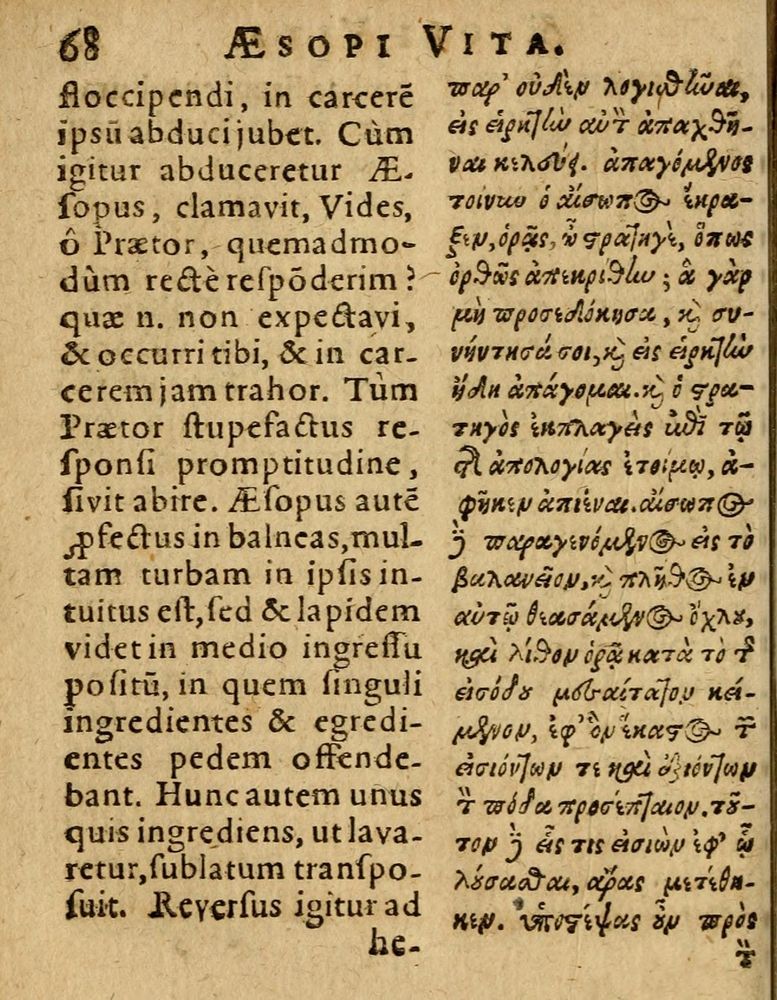 68 ÆSOPI VITA.
floccipendi, in carcerẽ
ipsũ abduci jubet. Cùm
igitur abduceretur Æ-
ſopus, clamavit, Vides,
ô Prætor, quemadmo-
dùm rectè reſpõderim?
quæ n. non expectavi,
& occurri tibi, & in car-
cerem jam trahor. Tùm
Prætor ſtupefactus re-
ſponſi promptitudine,
ſivit abire. Æſopus autẽ
ꝓfectus in balneas, mul-
tam turbam in ipſis in-
tuitus eſt, ſed & lapidem
videt in medio ingreſſu
poſitũ, in quem ſinguli
ingredientes & egredi-
entes pedem offende-
bant. Hunc autem unus
quis ingrediens, ut lava-
retur, ſublatum tranſpo-
ſuit. Reverſus igitur ad
he-
παρ' οὐδὲν λογισθῶναι,
εἰς εἱρκτὼ αὐτ̀ ἀπαχθῆ-
ναι κελεύει. ἀπαγόμενος
τοίνυν ὁ αἴσωπος ἔκρα-
ξεν, ὁρᾷς, ὦ στρατηγὲ, ὅπως
ὀρθῶς ἀπεκρίθω; ἃ γὰρ
μὴ προσεδόκησα, ϗ συ-
νήντησά σοι, ϗ εἰς εἱρκτὼ
ἤδη ἀπάγομαι. ϗ ὁ στρα-
τηγὸς ἐκπλαγεὶς ἐπὶ τῷ
τῆς ἀπολογίας ἑτοίμῳ, ἀ-
φῆκεν ἀπιέναι. αἴσωπος
δὲ παραγενόμενος εἰς τὸ
βαλανεῖον, ϗ πλῆθος ἐν
αὐτῷ θεασάμενος ὄχλου,
καὶ λίθον ὁρᾷ κατὰ τὸ τῆς
εἰσόδου μεσαίτατον κεί-
μενον, ἐφ' ὃν ἕκαστος τῶν
εἰσιόντων τε καὶ ἐξιόντων
τὸν πόδα προσέπταιον. τοῦ-
τον δὲ εἷς τις εἰσιὼν ἐφ' ᾧ
λούσασθαι, ἄρας μετέθη-
κεν. ὑποστρέψας οὖν πρὸς
τὸν